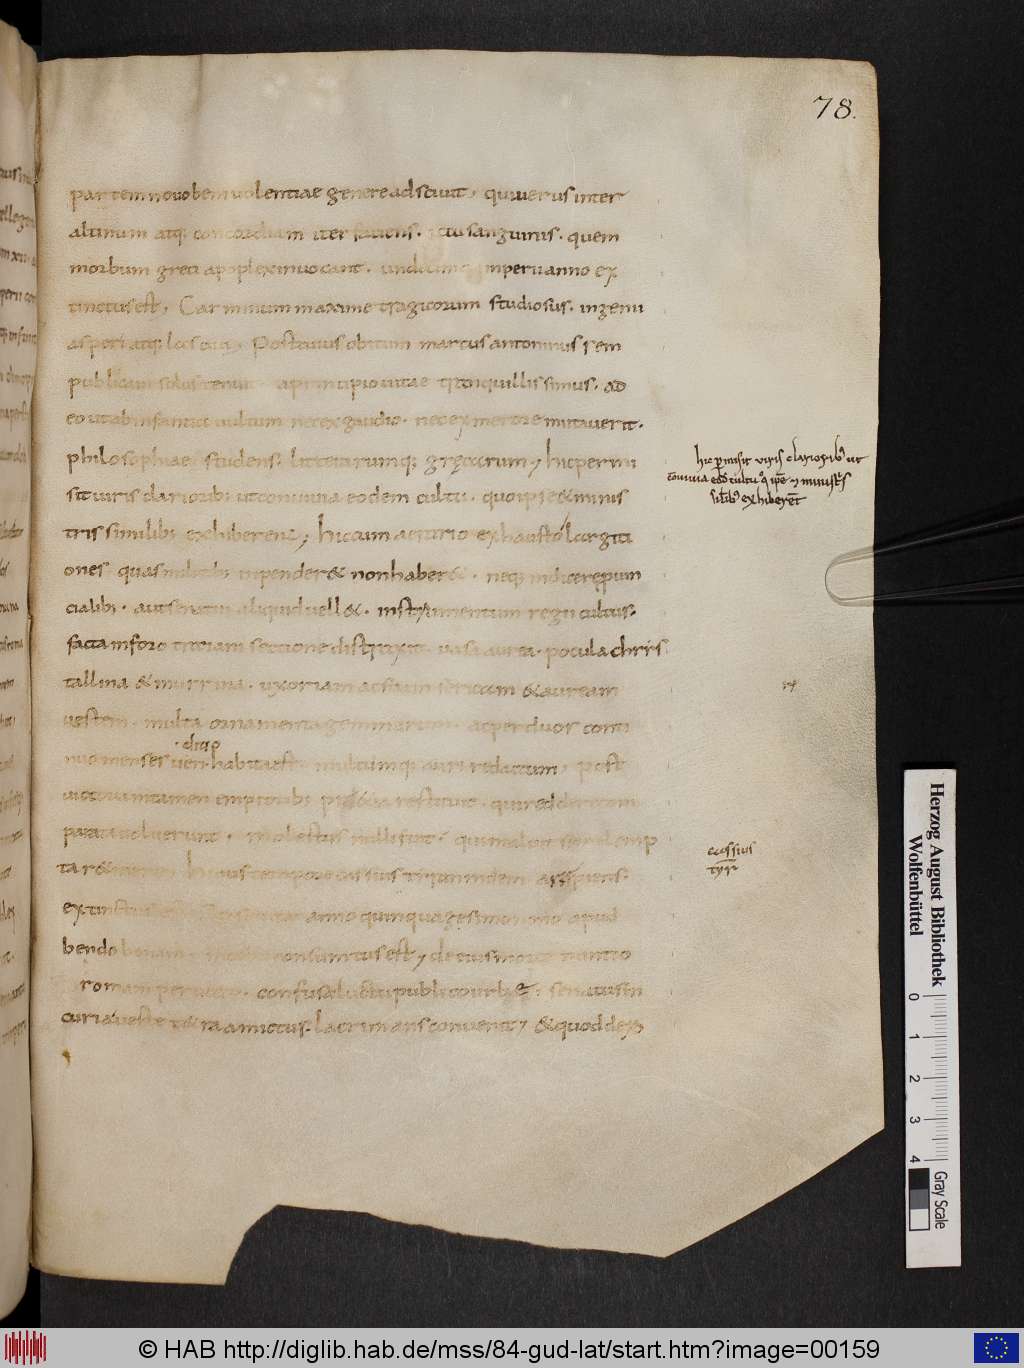 78.
partem novo benivolentiae genere adscivit, qui verus inter
altinum atq; concordiam iter faciens. ictu sanguinis. quem
morbum greci apoplexin vocant. undecimo imperii anno ex
tinctus est, Carminum maxime tragicorum studiosus. ingenii
asperi atq; lascivi, Post cuius obitum marcus antoninus rem
publicam solus tenuit a principio vitae tranquillissimus. ad
eo ut ab infantia vultum nec ex gaudio. nec ex merore mutaverit.
philosophiae studens. litterarumq; grecarum, hic permi
sit viris clariorib; ut convivia eodem cultu. quo ipse & minis
tris similib; exhiberent, hic cum aerario exhausto largiti
ones quas militib; inpender& non haber&. neq; indicere pum
cialib; aut senatui aliquid vell&. instrumentum regii cultus.
facta in foro traiani sectione distraxit. vasa aurea. pocula chris
tallina & murrina. uxoriam ac suam sericam & auream
vestem. multa ornamenta gemmarum. ac per duos conti
nuos menses
·disp·
veri habita est. multumq; auri redactum, post
victoriam tamen emptorib; restituit. qui reddere com
parata voluerunt. molestus nulli fuit. qui maluit semel emp
ta r&inere. huius tempore cassius tirannidem arripiens.
extinctus est anno quinquagesimo nono apud
bendobonam consumtus est, de eius morte nuntio
romam pervecto. confusa luctu publico urbe. senatus in
curia veste t&ra amictus. lacrimans convenit, & quod de ex
hic p̄misit viris clariorib; ut
convivia eod̄ cultu q̊ ip̄e & minist̄s
sil̄ib; exhiberēt
cassius
tyr̄
Herzog August Bibliothek
Wolfenbüttel
0 1 2 3 4
Gray Scale
© HAB http://diglib.hab.de/mss/84-gud-lat/start.htm?image=00159